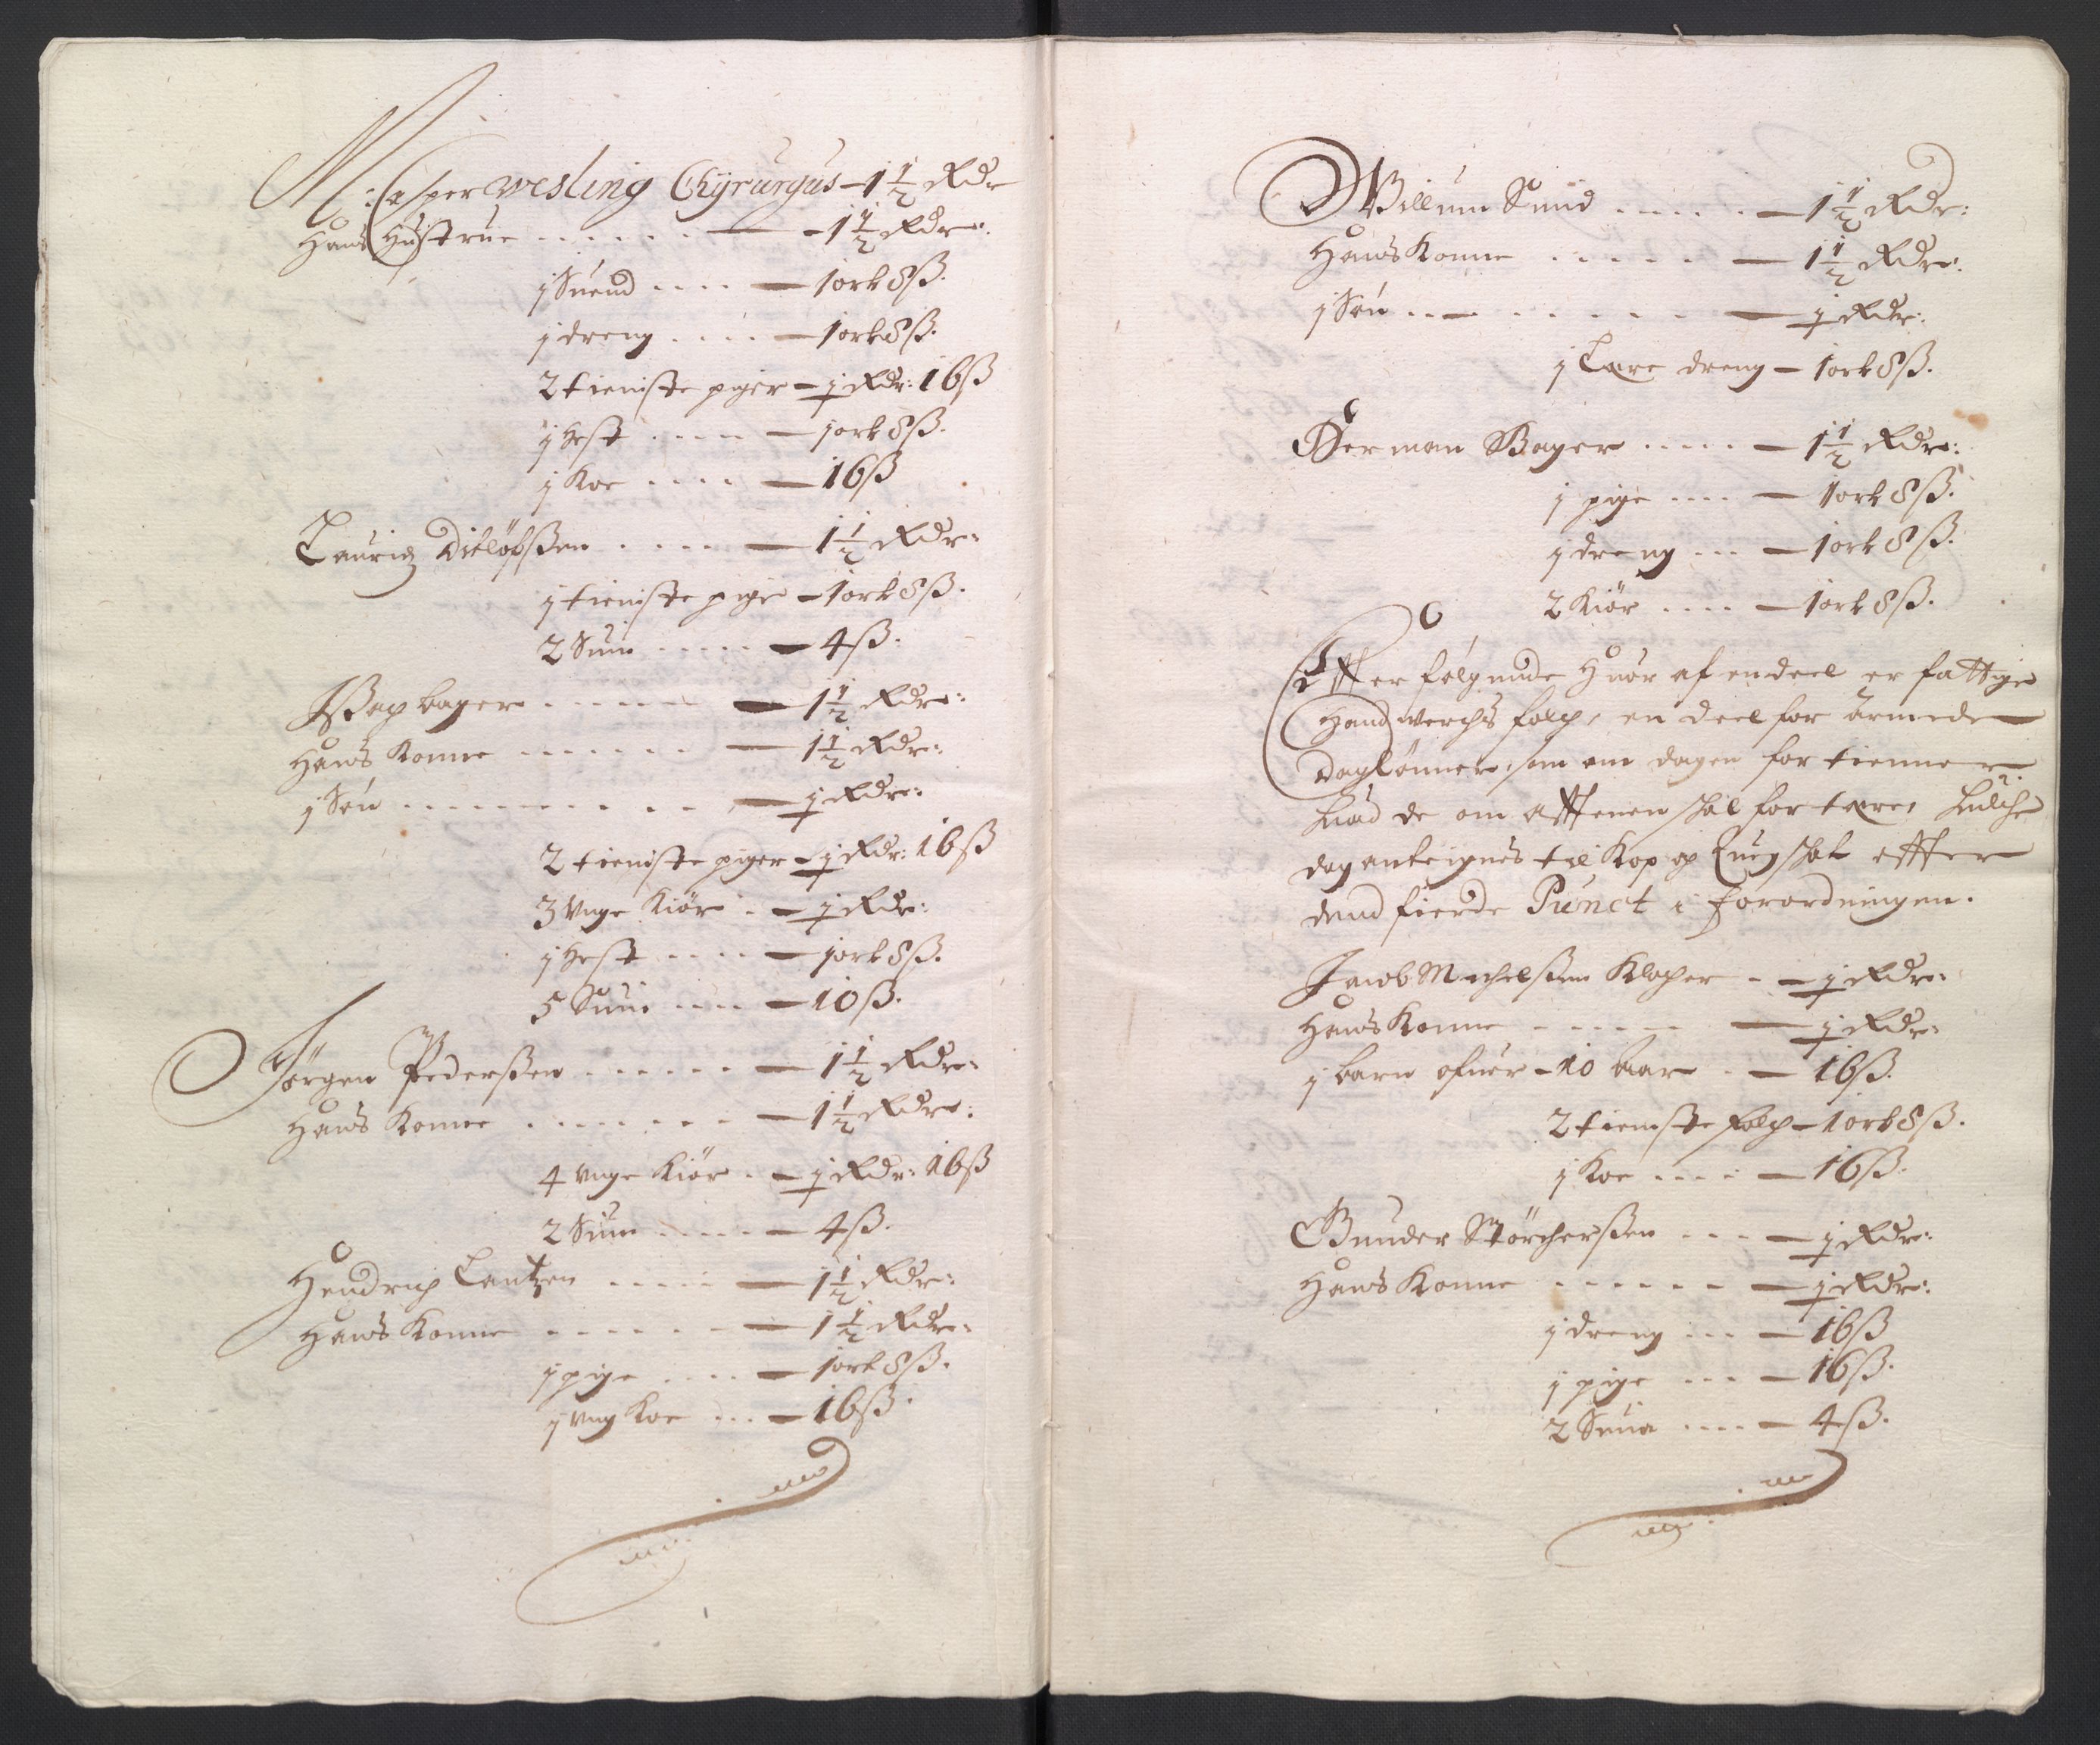 M: Casper Wesling Chÿrurgus – 1 1/2 Rdr
Hans Hustrue . . . . . – 1 1/2 Rdr:
j Suend . . . . – 1 ort 8 ß.
j dreng . . . . – 1 ort 8 ß.
2 tieniste piger – j Rdr: 16 ß
j Hest . . . . – 1 ort 8 ß.
j Koe . . . . – 16 ß
Lauridz Ditløfsßen . . . . – 1 1/2 Rdr:
j tieniste pige – 1 ort 8 ß.
2 Suin . . . . . – 4 ß.
bager . . . . . – 1 1/2 Rdr:
Hans Konne . . . . . . – 1 1/2 Rdr:
j Søn . . . . . . . . – j Rdr:
2 tieniste piger – j Rdr: 16 ß
3 unge Kiør . – j Rdr:
j Hest . . . . – 1 ort 8 ß.
5 Suin . . . . – 10 ß.
Jørgen Pederßen . . . . . . – 1 1/2 Rdr:
Hans Konne . . . . . . . – 1 1/2 Rdr:
4 unge Kiør . – j Rdr: 16 ß
2 Suin . . . . . – 4 ß.
Hendrich Lautzen . . . . . – 1 1/2 Rdr:
Hans Konne . . . . . . – 1 1/2 Rdr:
j pige . . . . – 1 ort 8 ß.
j ung Koe . . . – 16 ß.
Willum Smid . . . . . – 1 1/2 Rdr:
Hans Konne . . . . . – 1 1/2 Rdr:
j Søn . . . . . . . . – j Rdr:
j Lære dreng – 1 ort 8 ß.
Herman Bager . . . . . – 1 1/2 Rdr:
j pige . . . . – 1 ort 8 ß.
j dreng . . . – 1 ort 8 ß.
2 Kiør . . . . – 1 ort 8 ß.
Effterfølgende Huor af en deel er fattige
Handwerchs folch, en deel forarmede
Daglønnere, som om dagen fortienner
huad de om afftenen skal fortære, huilche
dog anteignes til Kop og Quegskat effter
dend fierde Punct i forordningen.
Jacob Michelßen Klocher . – j Rdr:
Hans Konne . . . . . . – j Rdr:
j barn ofuer – 10 aar . – 16 ß.
2 tieniste folch – 1 ort 8 ß.
j Koe . . . . – 16 ß.
Gunder Størcherßen . . . – j Rdr:
Hans Konne . . . . . . – j Rdr:
j dreng . . . – 16 ß
j pige . . . – 16 ß.
2 Suin . . . . – 4 ß.